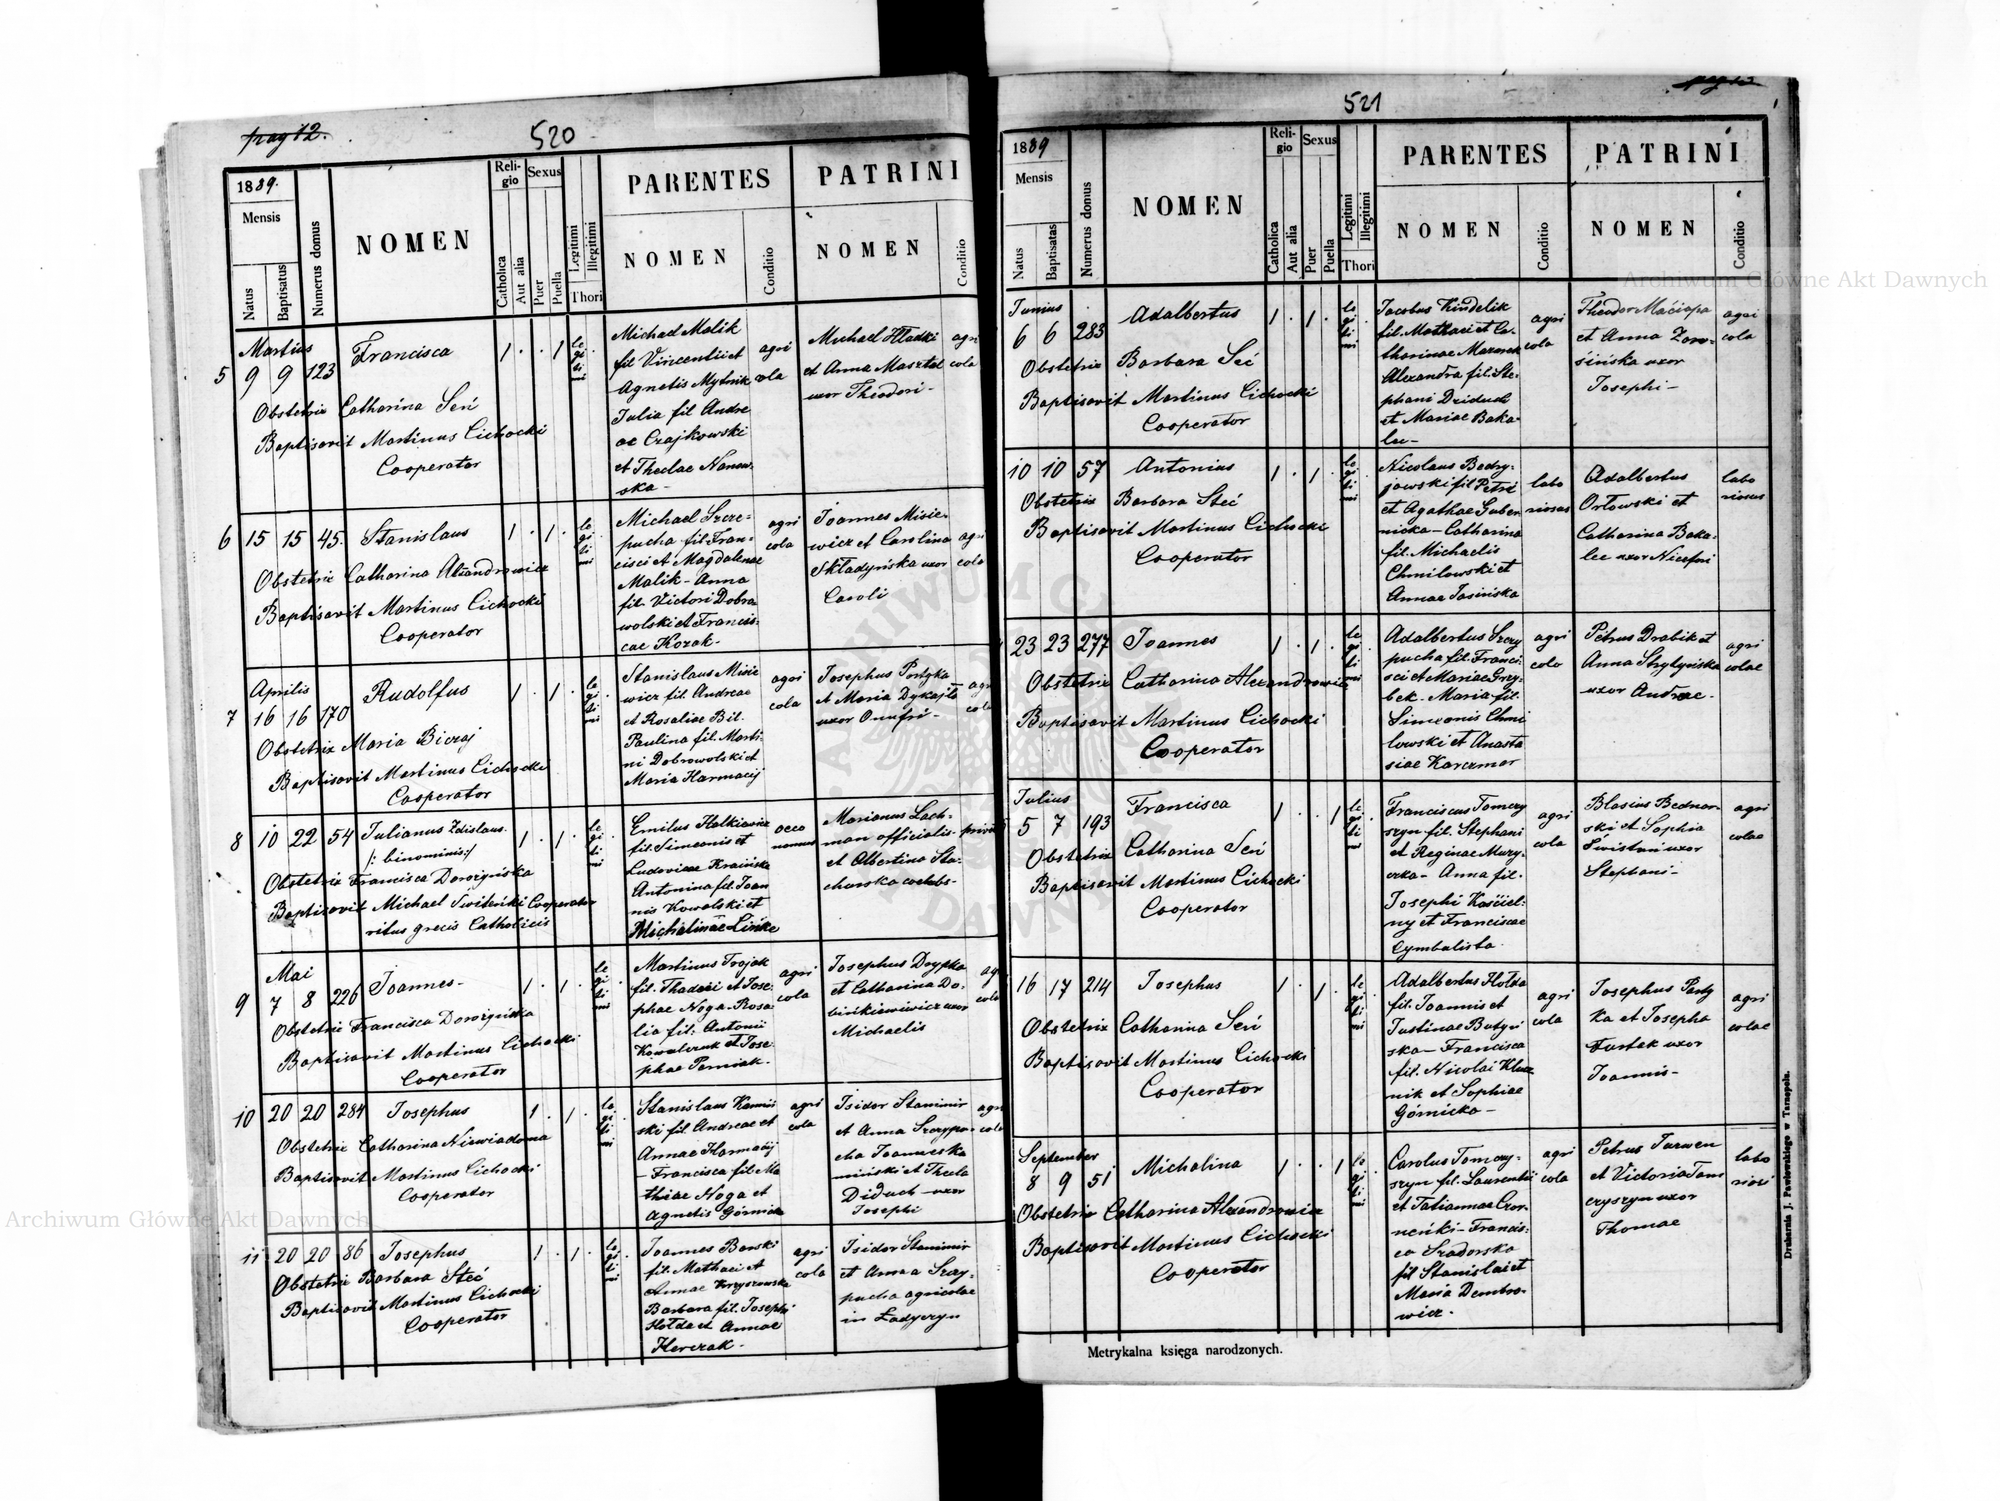 pag 12.
520
1889.
Mensis
Natus
Baptisatus
Numerus domus
NOMEN
Religio
Catholica
Aut alia
Sexus
Puer
Puella
Legitimi
Illegitimi
Thori
PARENTES
NOMEN
Conditio
PATRINI
NOMEN
Conditio
Martius
5 9 9 123 Francisca 1 . . 1 legitimi .
Obstetrix Catharina Seń
Baptisavit Martinus Cichocki
Cooperator
Michael Malik
fil Vincentii et
Agnetis Mytnik
Julia fil Andre
ae Czajkowski
et Theclae
ska -
agri
cola
Michael Hładki
et Anna Masztal
uxor Theodori -
agri
cola
6 15 15 45. Stanislaus 1 . 1 . legitimi .
Obstetrix Catharina Alexandrowicz
Baptisavit Martinus Cichocki
Cooperator
Michael Szcze-
pucha fil. Fran-
cisci et Magdalenae
Malik - Anna
fil. Victori Dobro
wolski et Francis-
cae Kozak -
agri
cola
Joannes Misie-
wicz et Carolina
Składyńska uxor
Caroli
agri
cola
Aprilis
7 16 16 170 Rudolfus 1 . 1 . legitimi .
Obstetrix Maria Biczaj
Baptisavit Martinus Cichocki
Cooperator
Stanislaus Misie
wicz fil. Andreae
et Rosaliae Bil.
Paulina fil. Marti-
ni Dobrowolski et
Maria Harmacij
agri
cola
Josephus Partyka
et Maria
uxor Onufri -
agri
cola
8 10 22 54 Julianus Zdislaus 1 . 1 . legitimi .
/: binominis :/
Obstetrix Francisca Dorożyńska
Baptisavit Michael Świteńki Cooperator
ritus grecis Catholicis
Emilus Halkiewicz
fil. Simeonis et
Ludovicae Kraińska
Antonina fil. Joan
nis Kowalski et
Michalinae Linke
oeco
nomus
Marianus Lach-
man officialis
et Albertina Sta-
churska coelebs -
Mai
9 7 8 226 Joannes - 1 . 1 . legitimi .
Obstetrix Francisca Dorożyńska
Baptisavit Martinus Cichocki
Cooperator
Martinus Trojak
fil. Thadaei et Jose-
phae Noga - Rosa
lia fil. Antonii
Kowalczuk et Jose-
phae Parniak -
agri
cola
Josephus Drypka
et Catharina Do-
uxor
Michaelis
10 20 20 284 Josephus 1 . 1 . legitimi .
Obstetrix Catharina Niewiadoma
Baptisavit Martinus Cichocki
Cooperator
Stanislaus Kamiń
ski fil. Andreae et
Annae Harmacij
- Francisca fil. Ma
thiae Noga et
Agnetis Górnicka
agri
cola
Isidor Staminir
et Anna Szczypu-
cha Joannes Ka
miński et Thecla
Diduch - uxor
Josephi
11 20 20 86 Josephus 1 . 1 . legitimi .
Obstetrix Barbara Steć
Baptisavit Martinus Cichocki
Cooperator
Joannes Barski
fil. Mathaei et
Annae Kryszowska
Barbara fil. Josephi
Hołda et Annae
Herczak -
agri
cola
Isidor Staminir
et Anna Szczy-
pucha agricolae
in Ładyczyn
521
1889
Mensis
Natus
Baptisatus
Numerus domus
NOMEN
Religio
Catholica
Aut alia
Sexus
Puer
Puella
Legitimi
Illegitimi
Thori
PARENTES
NOMEN
Conditio
PATRINI
NOMEN
Conditio
Junius
6 6 283 Adalbertus 1 . 1 . legitimi .
Obstetrix Barbara Seć
Baptisavit Martinus Cichocki
Cooperator
Jacobus Kindelik
fil. Mathaei et Ca-
tharinae Mazurek
Alexandra fil. Ste-
phani Dziduch
et Mariae Baka-
lec -
agri
cola
Theodor Maciopa
et Anna Zaro-
sińska uxor
Josephi -
agri
cola
10 10 57 Antonius 1 . 1 . legitimi .
Obstetrix Barbara Steć
Baptisavit Martinus Cichocki
Cooperator
Nicolaus Bedry-
jowski fil Petri
et Agathae Guber
nicka - Catharina
fil. Michaelis
Chmilowski et
Annae Jasińska
labo
riosus
Adalbertus
Orłowski et
Catharina Baka-
lec uxor Nicefori
labo
riosus
23 23 277 Joannes 1 . 1 . legitimi .
Obstetrix Catharina Alexandrowicz
Baptisavit Martinus Cichocki
Cooperator
Adalbertus Szczy
pucha fil. Franci-
sci et Mariae Grzy-
bek - Maria fil.
Simeonis Chmi
lowski et Anasta
siae Karczmar
agri
cola
Petrus Drabik et
Anna Stryżyńska
uxor Andreae -
agri
colae
Julius
5 7 193 Francisca 1 . . 1 legitimi .
Obstetrix Catharina Seń
Baptisavit Martinus Cichocki
Cooperator
Franciscus Tomczy
szyn fil. Stephani
et Reginae Muzy-
czka - Anna fil.
Josephi Kościel-
ny et Franciscae
Cymbalista
agri
cola
Blasius Bednar-
ski et Sophia
Świstun uxor
Stephani -
agri
colae
16 17 214 Josephus 1 . 1 . legitimi .
Obstetrix Catharina Seń
Baptisavit Martinus Cichocki
Cooperator
Adalbertus Hołda
fil. Joannis et
Justinae Butyń
ska - Francisca
fil. Nicolai Klucz
nik et Sophiae
Górnicka -
agri
cola
Josephus Party
ka et Josepha
Furtak uxor
Joannis -
agri
colae
September
8 9 51 Michalina 1 . . 1 legitimi .
Obstetrix Catharina Alexandrowicz
Baptisavit Martinus Cichocki
Cooperator
Carolus Tomczy-
szyn fil. Laurentii
et Tatiannae Czor-
neńki - Francis-
ca Szadorska
fil Stanislai et
Maria Dembro-
wicz -
agri
cola
Petrus Turwen
et Victoria Tom
czyszyn uxor
Thomae
labo
riosi
Metrykalna księga narodzonych.
Drukarnia J. Pawłowskiego w Tarnopolu.
Archiwum Główne Akt Dawnych
Archiwum Główne Akt Dawnych